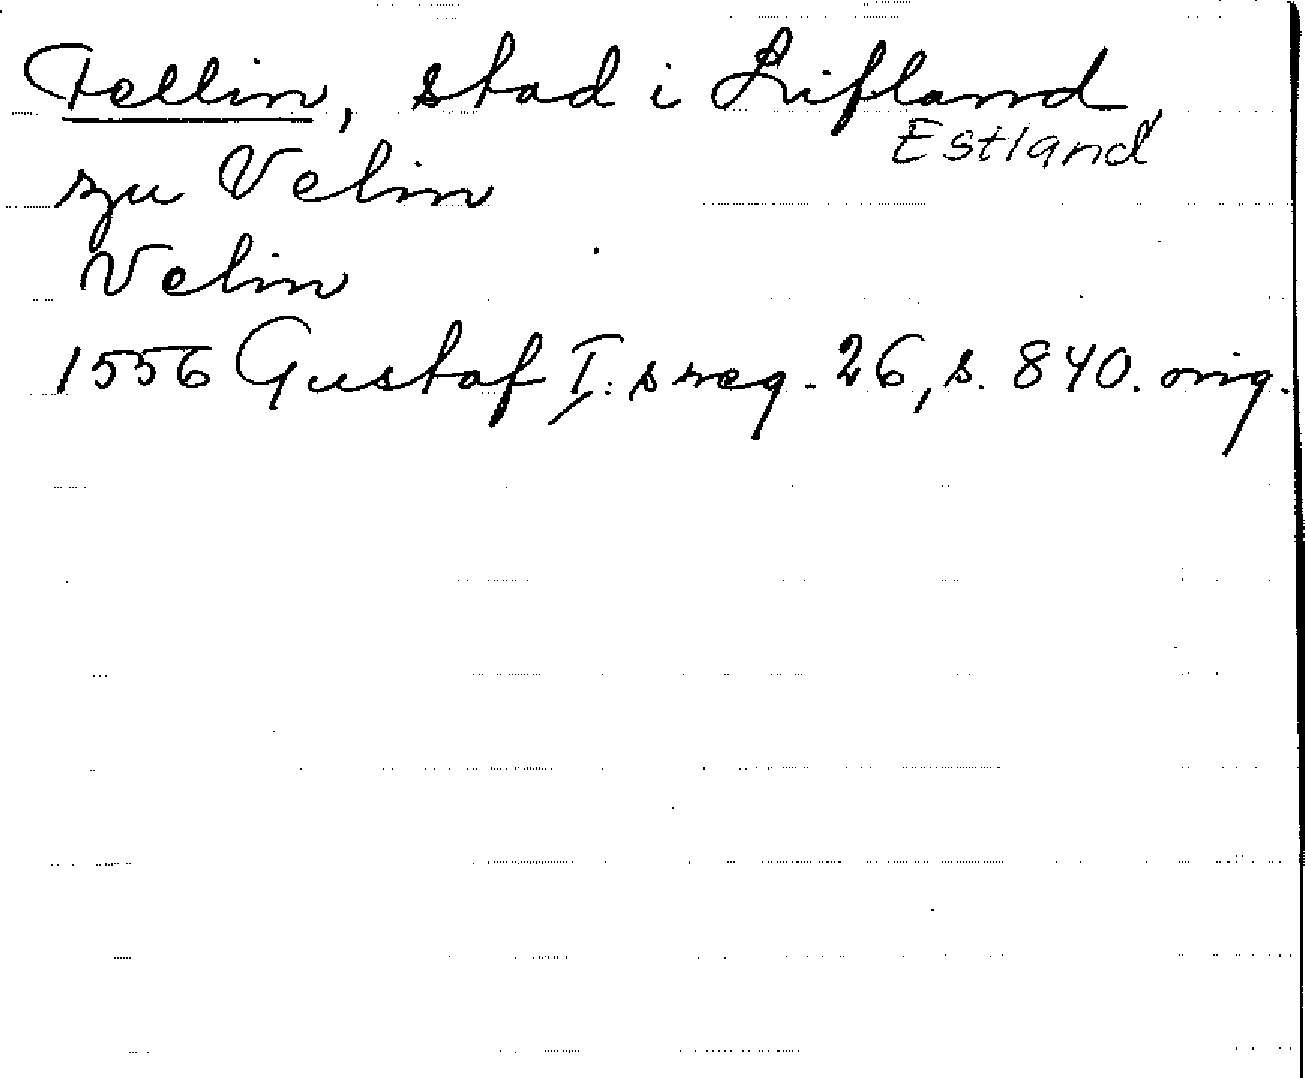 Fellin, stad i Lifland,
Estland
zu Velin
Velin
1556 Gustaf I:s reg. 26, s. 840. orig.